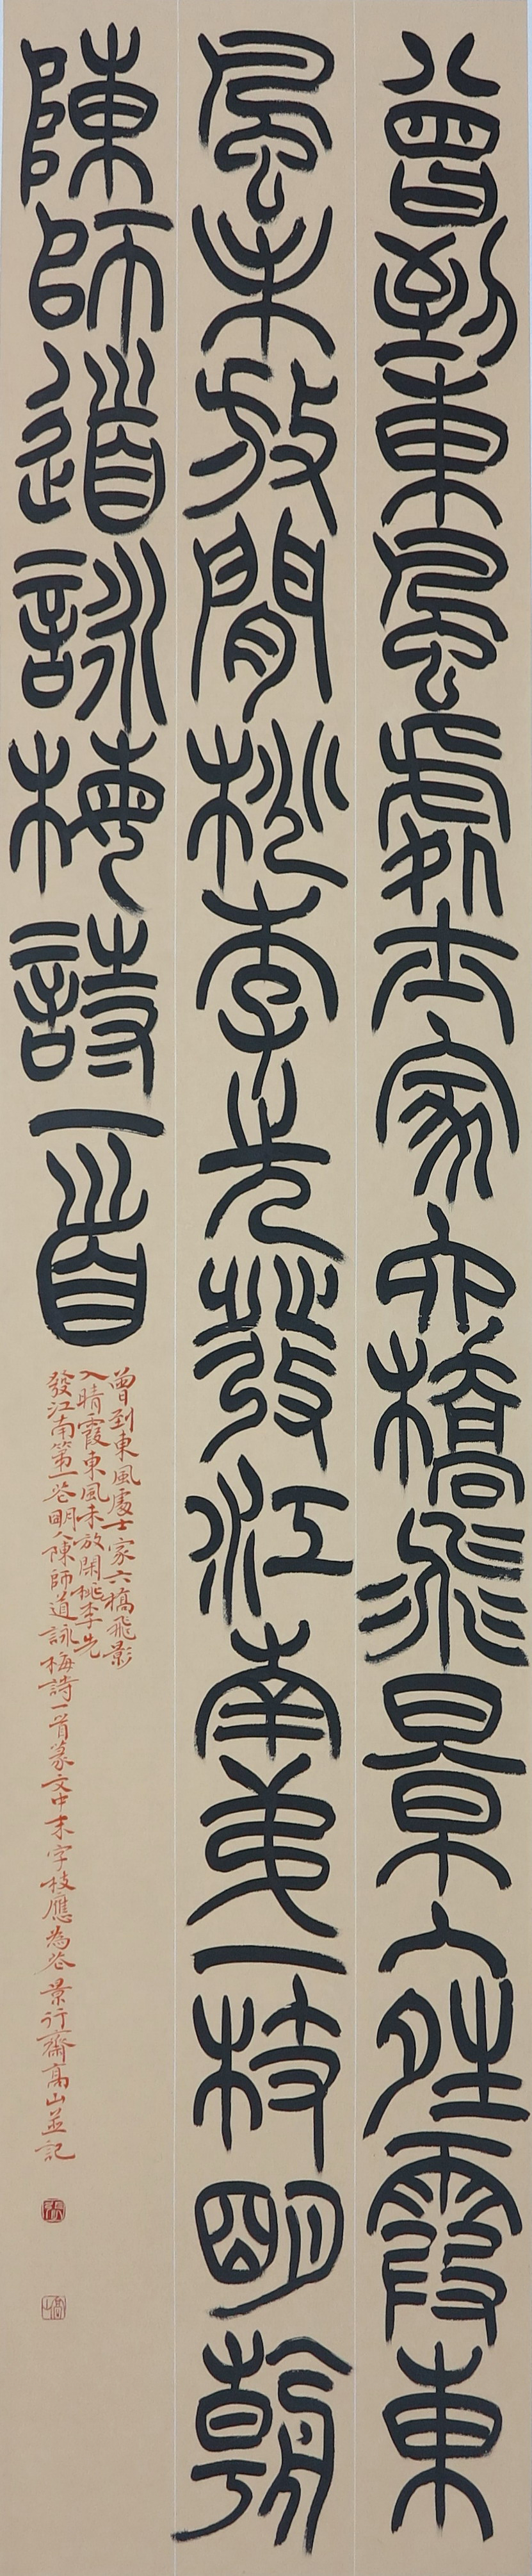 曾到東風處士家六橋飛景入晴霞東
風未放閒桃李先發江南弟一枝明朝
陳師道詠梅詩一首
曾到東風處士家六橋飛影
入晴霞東風未放閑桃李先
發江南第一花明人陳師道詠梅詩一首篆文中末字枝應為花景行齋高山並記